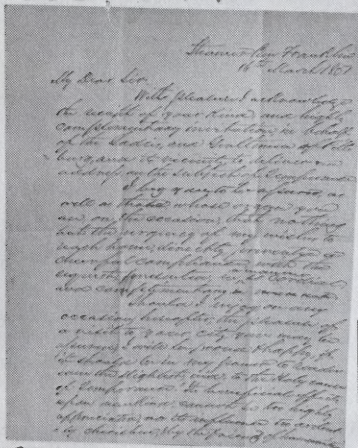 Steamer Ben Franklin
16th March 1851
My Dear Sir
With pleasure I acknowledge
the receipt of your kind and highly
complimentary invitation in behalf
of the Ladies and Gentlemen of
burg and its vicinity to deliver an
address on the subject of Temperance
I beg you to be assured as
well as those whose organ you
are on the occasion, that nothing
but the urgency of my wishes to
reach home, directly prevents a
cheerful compliance with the
request, conveyed in
and complimentary
Should I enjoy on any
occasion hereafter, the pleasure of
a visit to your city you may be
assured, I will be proud & happy, if
it should be in my power to render
even the slightest aid to the Holy cause
of Temperance. Its beneficial effects
upon mankind cannot be too highly
appreciated, nor its influence too ardent
ly cherished by the friends of